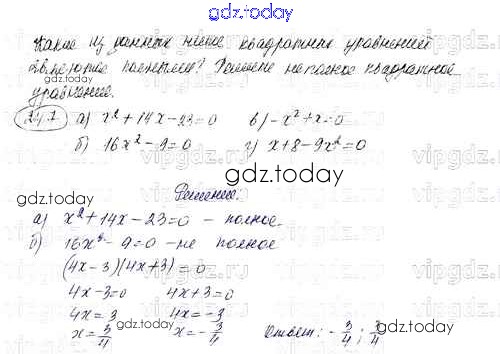 gdz.today
Какие из данных ниже квадратных уравнений
являются полными? Решите неполное квадратное
уравнение.
24.7 а) x² + 14x - 23 = 0 в) -x² + x = 0
б) 16x² - 9 = 0 г) x + 8 - 9x² = 0
gdz.today
Решение:
а) x² + 14x - 23 = 0 - полное.
б) 16x² - 9 = 0 - не полное
(4x - 3)(4x + 3) = 0
4x - 3 = 0 4x + 3 = 0
4x = 3 4x = -3
x = 3/4 x = -3/4 Ответ: -3/4; 3/4
gdz.today